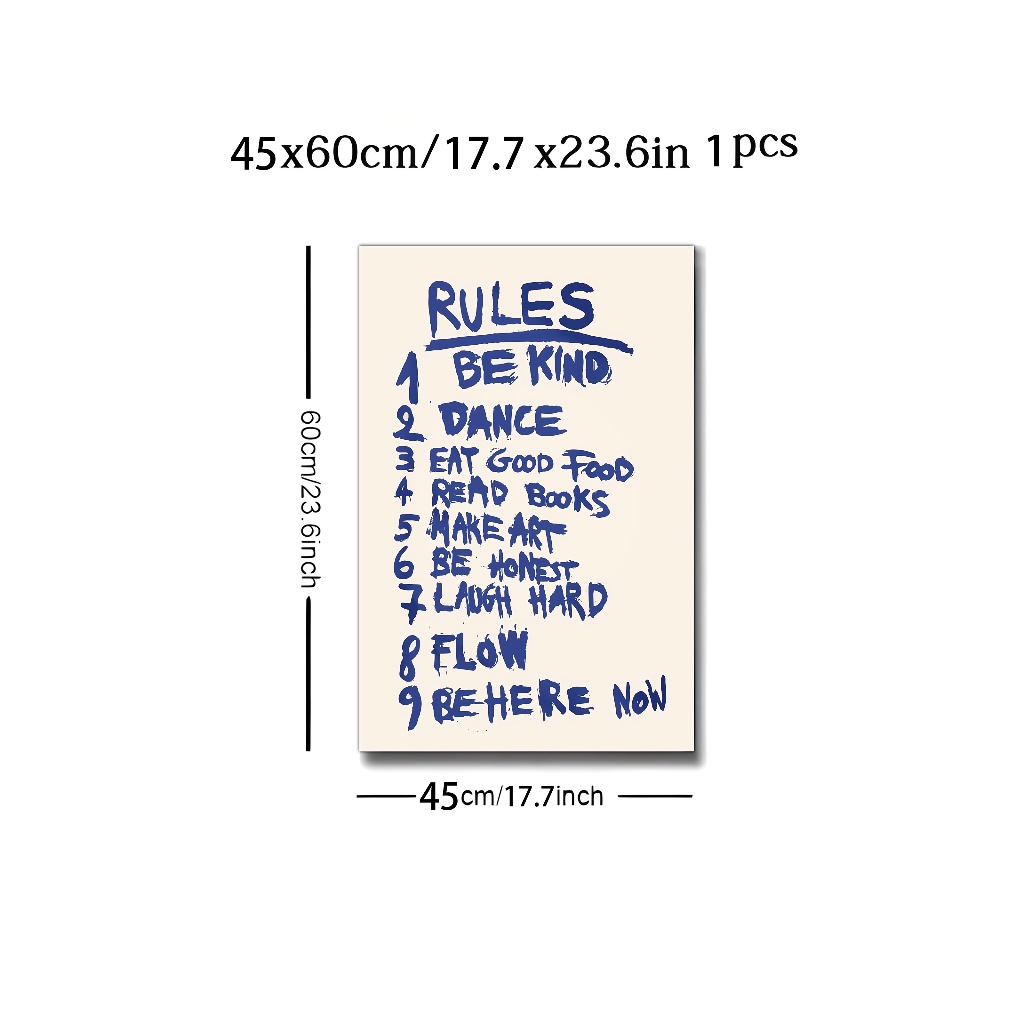 45x60cm/17.7 x23.6in 1pcs
60cm/23.6inch
RULES
1 BE KIND
2 DANCE
3 EAT GOOD FOOD
4 READ BOOKS
5 MAKE ART
6 BE HONEST
7 LAUGH HARD
8 FLOW
9 BE HERE NOW
45cm/17.7inch